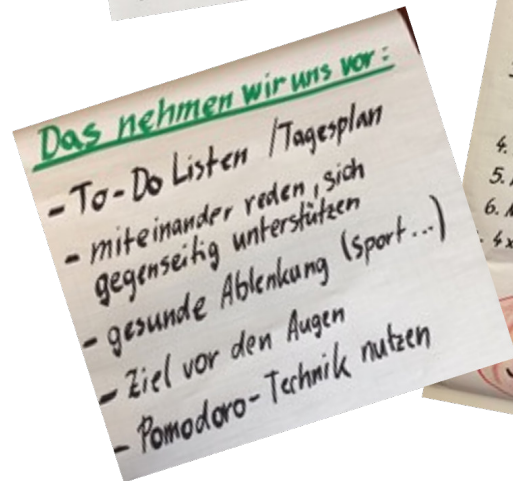 Das nehmen wir uns vor:
- To-Do Listen /Tagesplan
- miteinander reden, sich
gegenseitig unterstützen
- gesunde Ablenkung (Sport...)
- Ziel vor den Augen
- Pomodoro-Technik nutzen
4.
5.
6.
4x